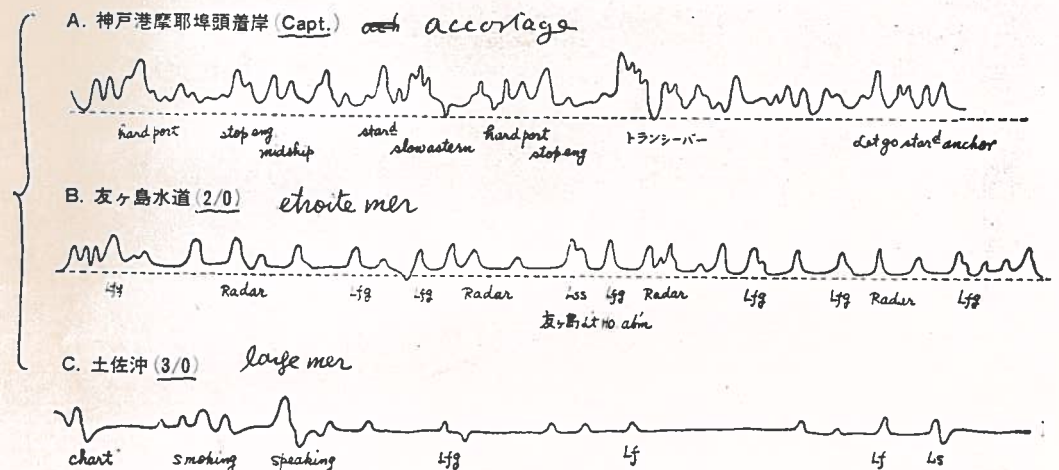 A. 神戸港摩耶埠頭着岸 (Capt.) accostage
hard port stop eng midship starᵈ slow astern hard port stop eng トランシーバー Let go starᵈ anchor
B. 友ヶ島水道 (2/0) etroite mer
Lfg Radar Lfg Lfg Radar Lss Lfg Radar Lfg Lfg Radar Lfg
友ヶ島 Lt Ho abm
C. 土佐沖 (3/0) large mer
chart smoking speaking Lfg Lf Lf Ls